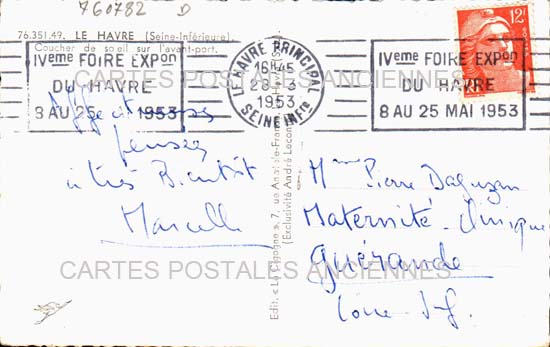 760782 D
76.351.49. LE HAVRE (Seine-Inférieure).
Coucher de soleil sur l'avant-port.
IVeme FOIRE EXPon
DU HAVRE
8 AU 25 1953
LE HAVRE PRINCIPAL
16H45
28-3
1953
SEINE INFre
IVeme FOIRE EXPon
DU HAVRE
8 AU 25 MAI 1953
12F
CARTES POSTALES ANCIENNES
pensées
à très Bientôt
Marcelle
Edit. « La Cigogne », 7, rue Anatole-France
(Exclusivité André Lecont
Mme Pierre Daguzan
Maternité Clinique
Guérande
Loire Inf.
CARTES POSTALES ANCIENNES